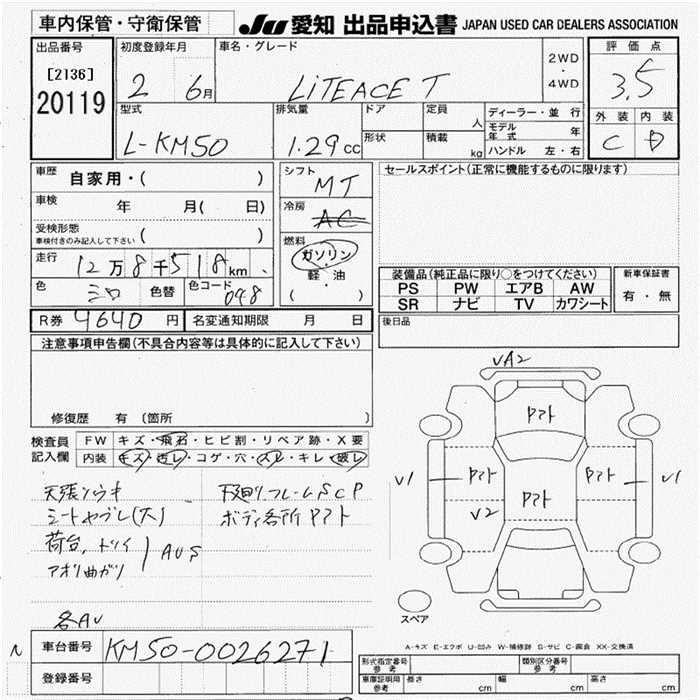 車内保管・守衛保管
JU 愛知 出品申込書 JAPAN USED CAR DEALERS ASSOCIATION
出品番号
[2136]
20119
初度登録年月
2 6月
車名・グレード
LiTEACE T
2WD
・
4WD
評価点
3.5
外装 内装
C D
型式
L-KM50
排気量
1.29 cc
ドア
形状
定員
人
積載
kg
ディーラー・並行
モデル年式 年
ハンドル 左・右
車歴
自家用・( )
車検
年 月( 日)
受検形態
車検付きのみ記入して下さい ( )
走行
12万8千518km
色
シロ
色替
色コード
048
シフト
MT
冷房
AC
燃料
ガソリン
軽・油
( )
セールスポイント(正常に機能するものに限ります)
装備品(純正品に限り○をつけてください)
PS PW エアB AW
SR ナビ TV カワシート
新車保証書
有・無
後日品
R券 4640 円
名変通知期限 月 日
注意事項申告欄(不具合内容等は具体的に記入して下さい)
修復歴 有 (箇所 )
検査員
記入欄
FW キズ・飛石・ヒビ割・リペア跡・X要
内装 キズ・汚レ・コゲ・穴・スレ・キレ・破レ
シートヤブレ(大)
下廻リフレームSCP
ボディ各所Pアト
荷台,トリイ
アオリ曲ガリ
AUS
各AU
VA2
Pアト
V1
Pアト
Pアト
V1
V2
Pアト
スペア
A-キズ E-エクボ U-凹み W-補修跡 S-サビ C-腐食 XX-交換済
N
車台番号
KM50-0026271
登録番号
形式指定番号
参考
類別区分番号
参考
車庫証明用
参考
長さ cm
幅 cm
高さ cm